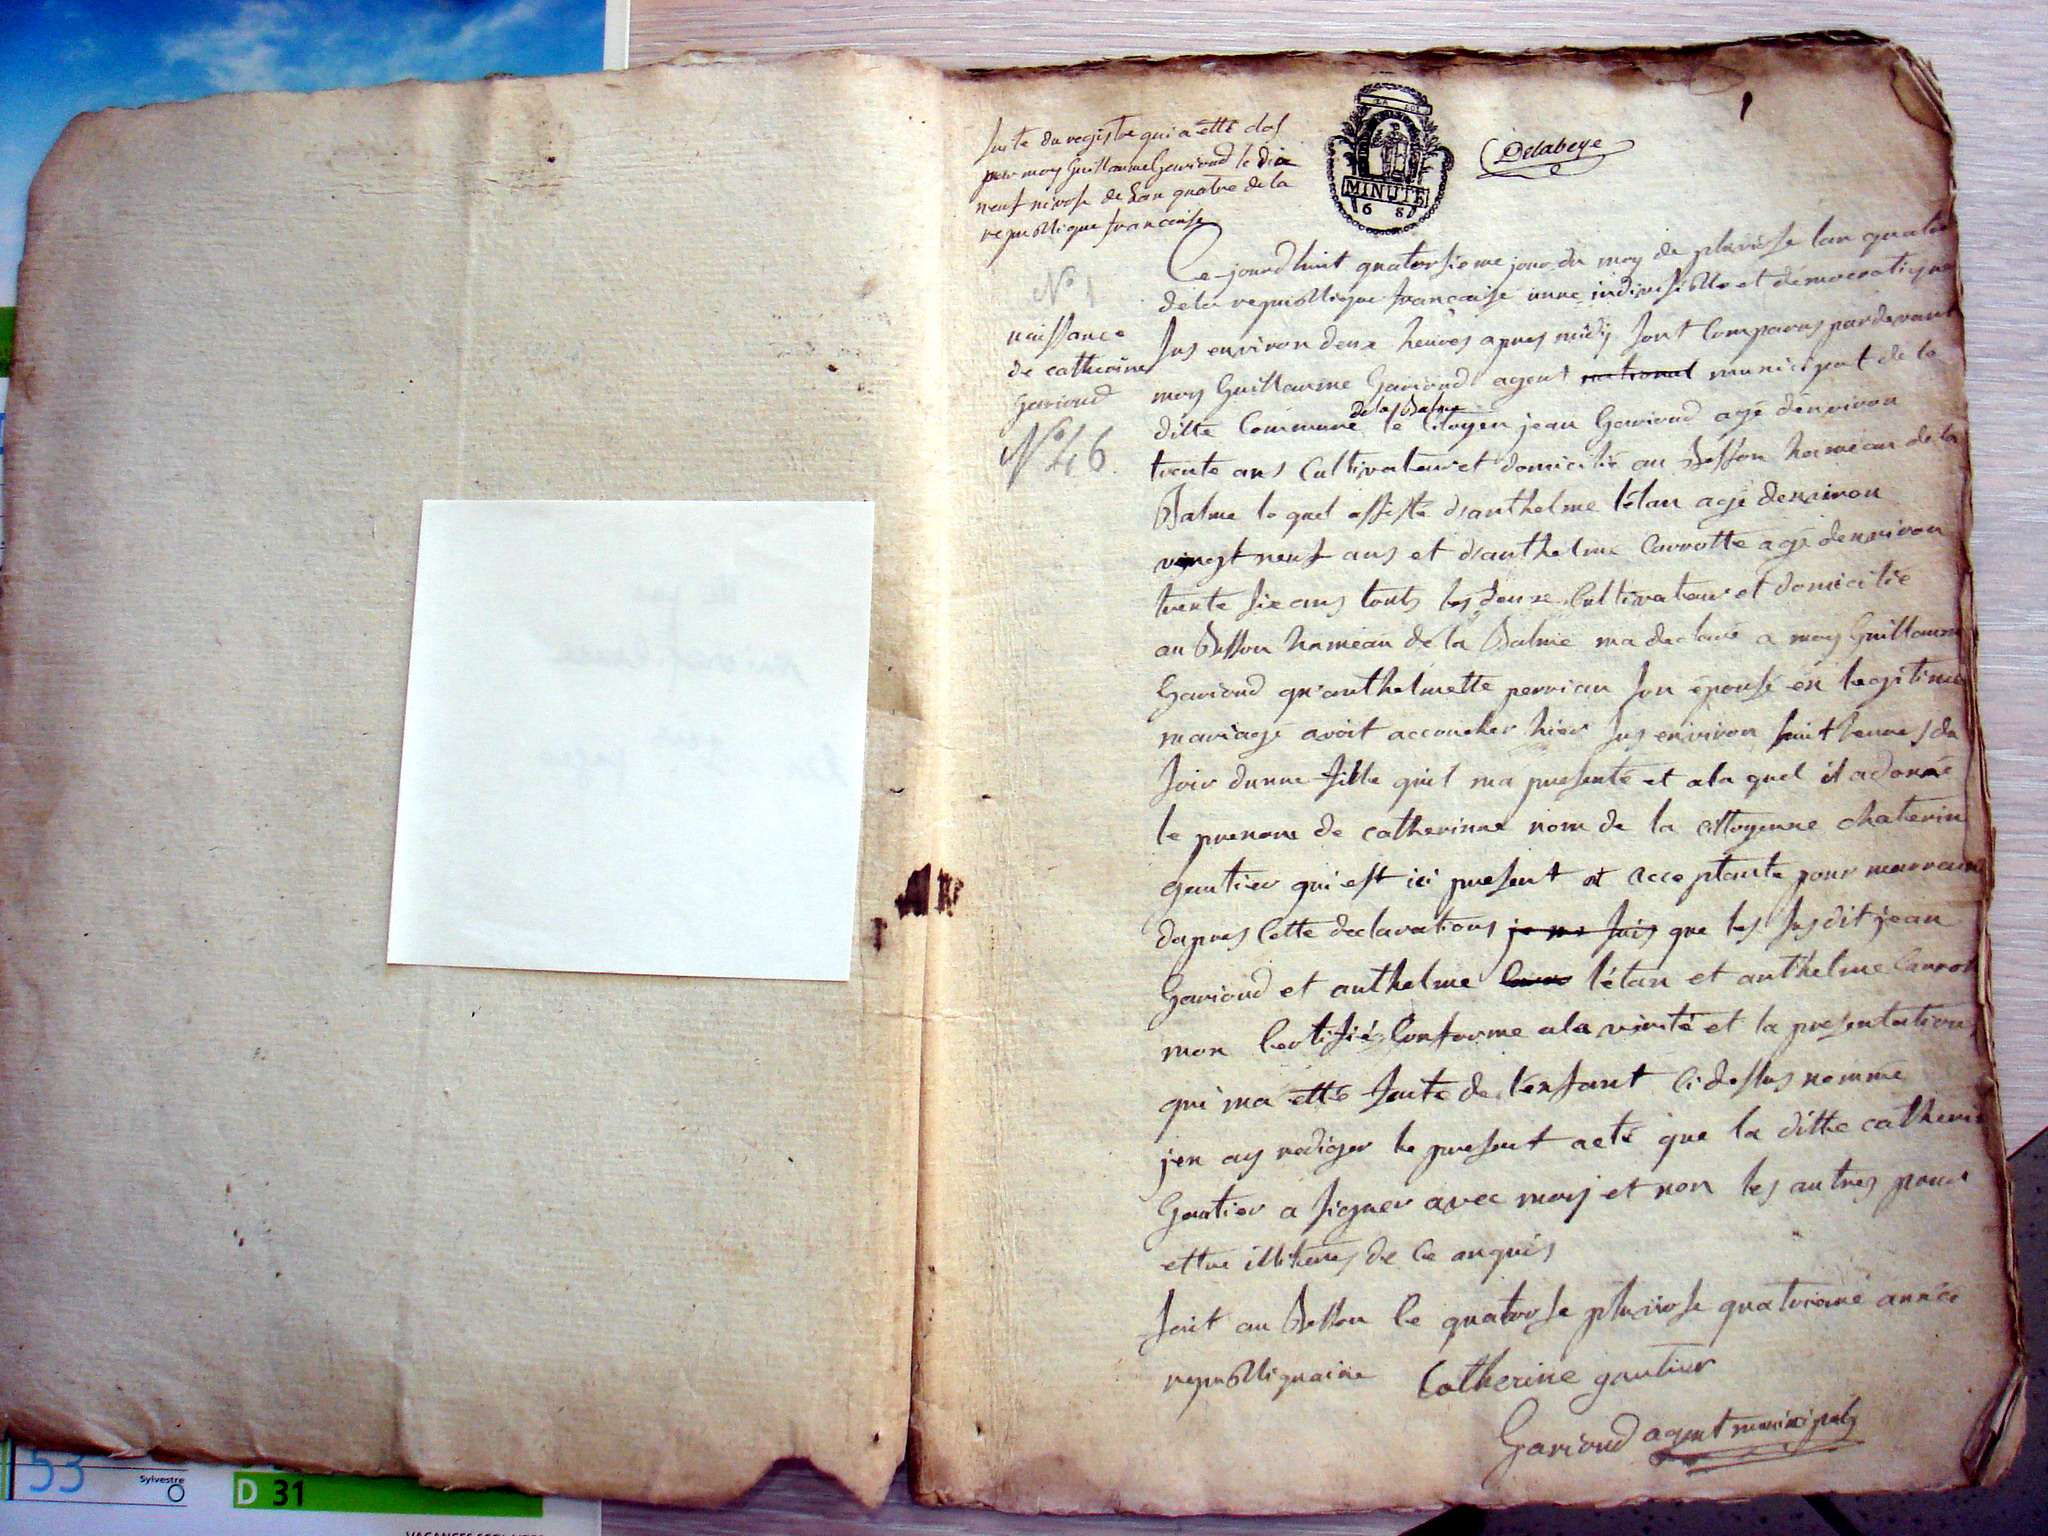 Suite du registre qui a etté clos
par moy Guillaume Gavioud le dix
neuf nivose de l'an quatre de la
republique francaise
LA LOI
MINUTE
1 6 8
Delabeye
1
Ce jourdhuit quatorsieme jour du moy de pluviose lan quatre
de la republique francaise unne indivisible et démocratique
sus environ deux heures apres midy sont comparus pardevant
moy Guillaume Gavioud agent national municipal de la
de la Balme
ditte Commune le citoyen jean Gavioud agé denviron
trente ans Cultivateur et domicilié au Besson hameau de la
Balme le quel assisté d'anthelme létan agé denviron
vingt neuf ans et d'anthelme Carrotte agé denviron
trente six ans touts les deux Cultivateur et domicilié
au Besson hameau de la Balme ma declaré a moy Guillaume
Gavioud qu'anthelmette perrian son épousé en legitime
mariage avoit accoucher hier sus environ huit heures du
soir dunne fille quil ma presenté et ala quel il a donné
le prenom de catherinne nom de la cittoyenne chaterin
gautier qui est ici present et acceptante pour marraine
dapres cette declarations je me suis que les susdit jean
Gavioud et anthelme létan et anthelme Carrot
mon Certifié Conforme a la virité et la presentation
qui ma etté faite de l'enfant ci dessus nommé
j'en ay rediger le present acte que la ditte catherin
Gautier a signer avec moy et non les autres pour
ettre illitéres de ce anquis
fait au Besson le quatorse pluviose quatrieme année
republiquaine Catherine gautier
Gavioud agent municipal
N° 1
naissance
de catherine
gavioud
N° 46
53
Sylvestre
D 31